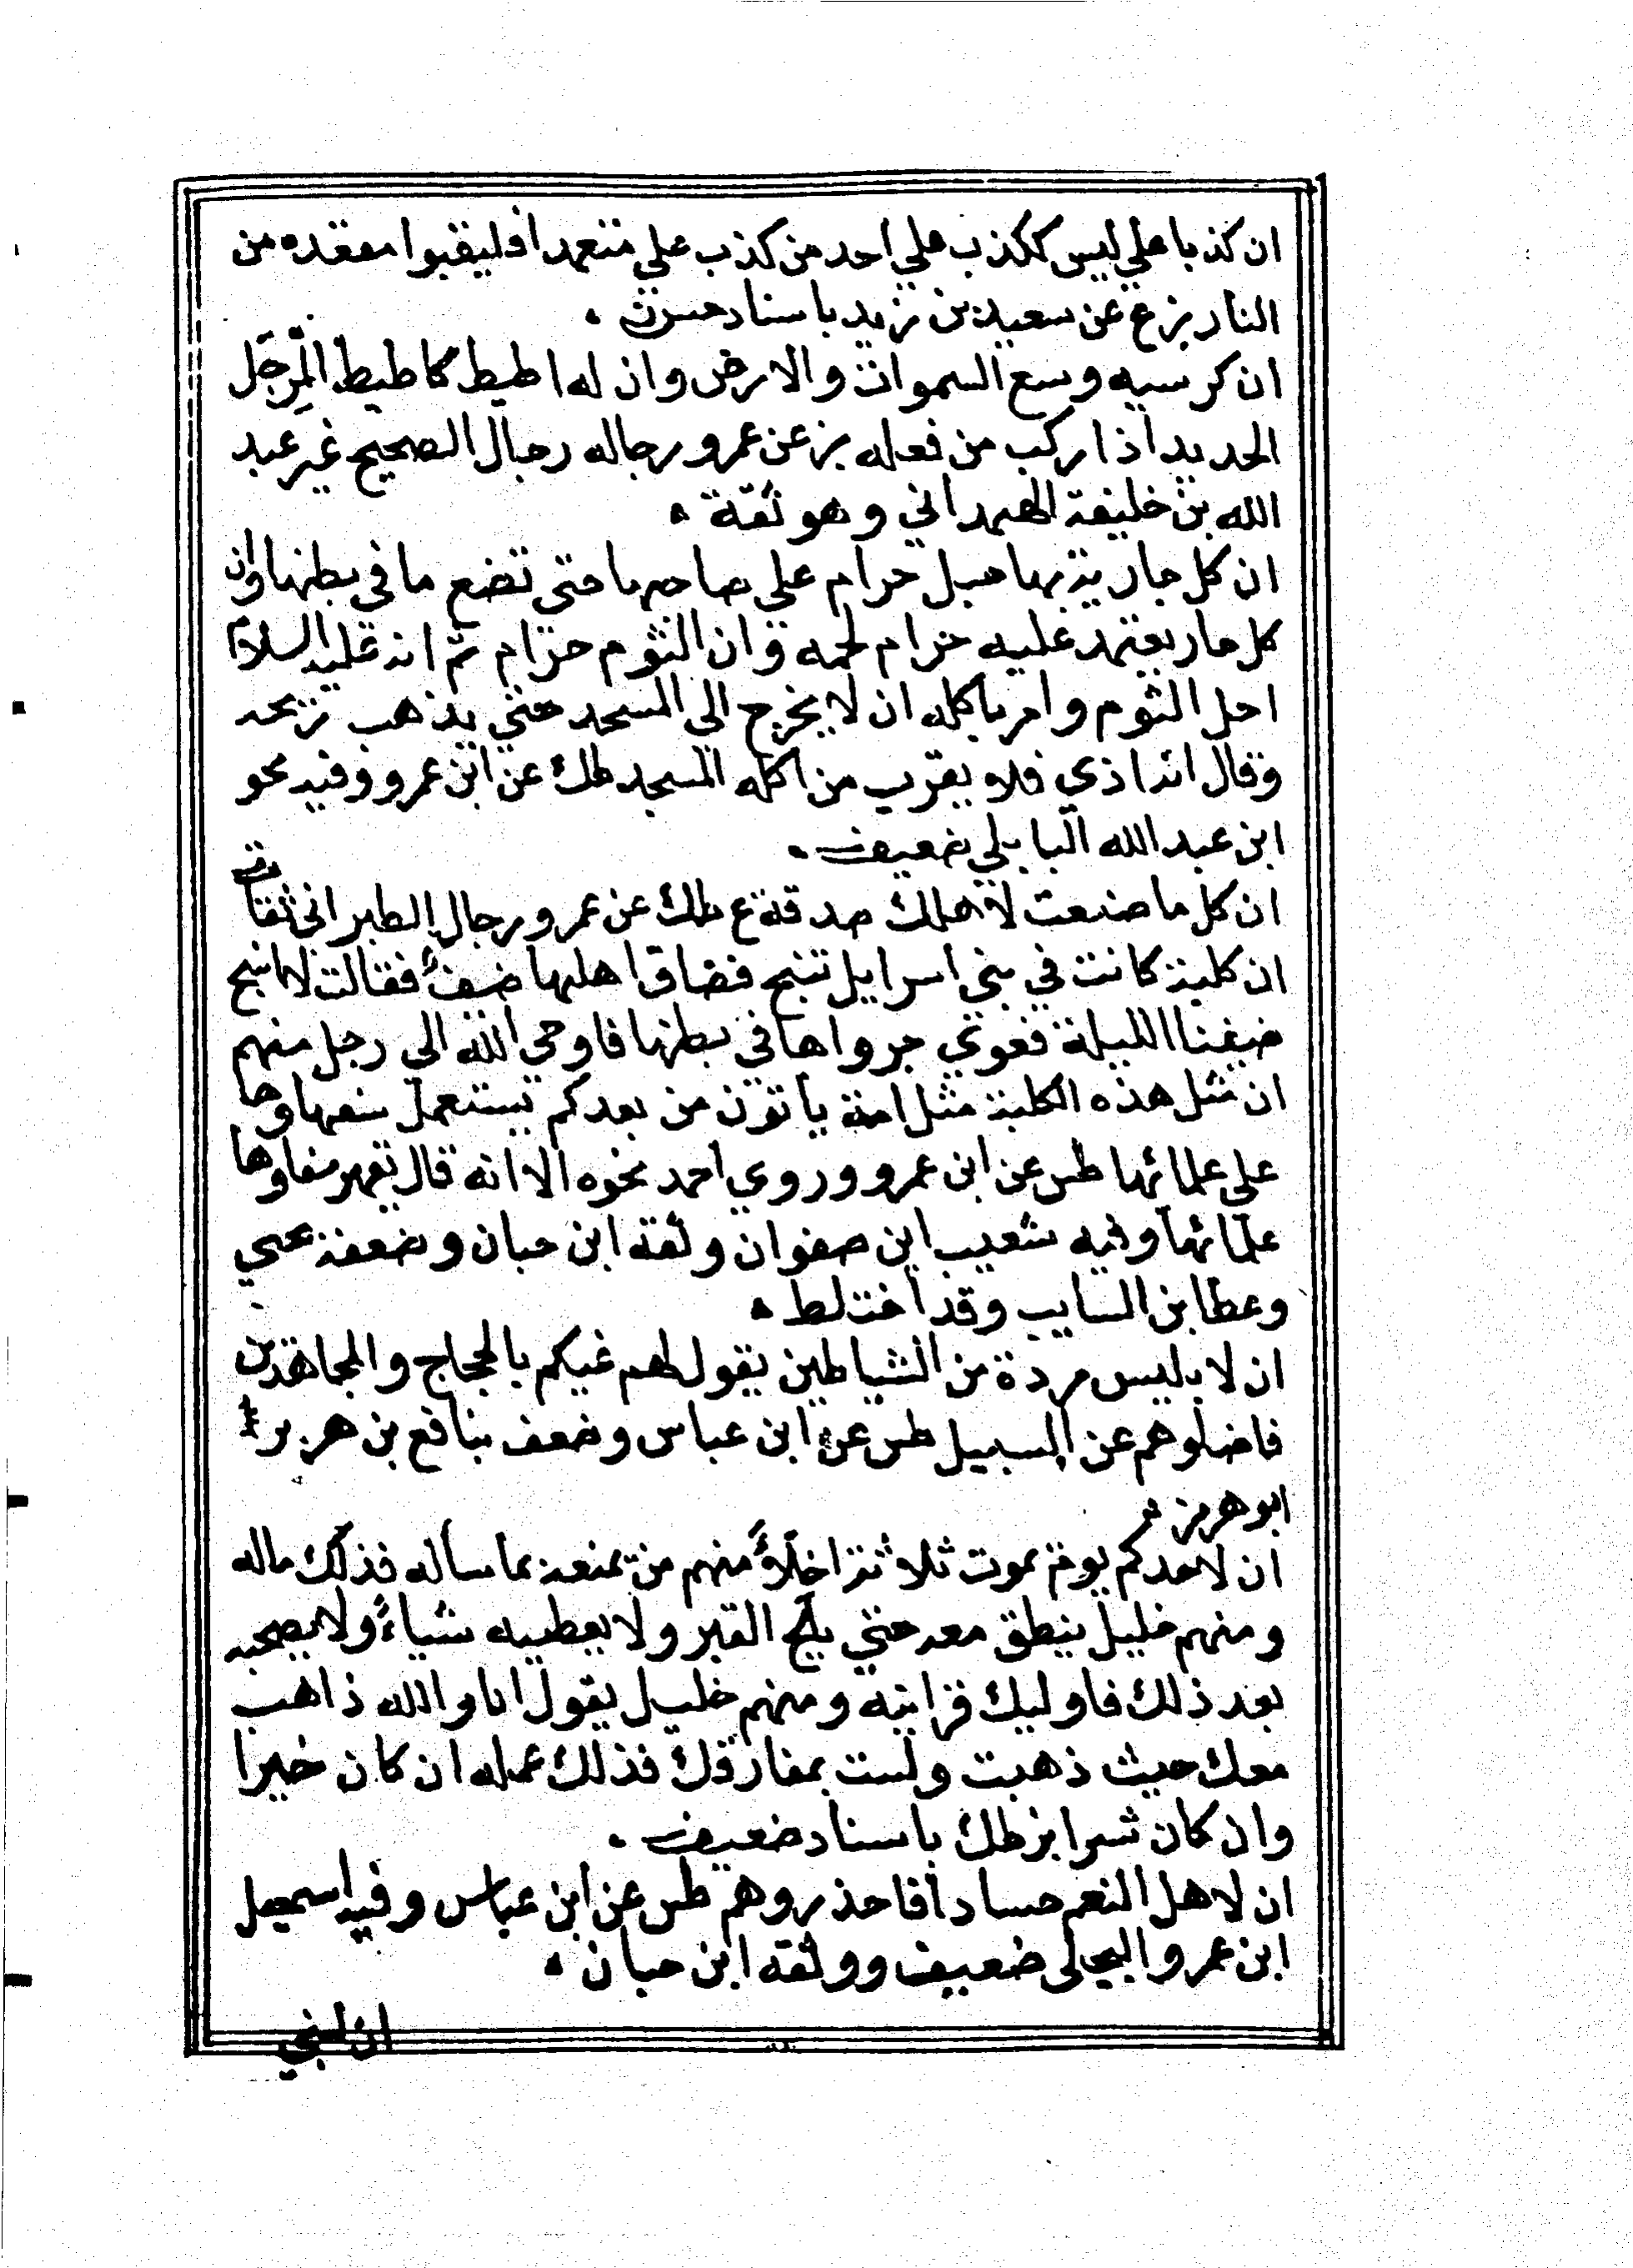 ان كذبا علي ليس ككذب علي احد من كذب علي متعمدا فليقبوا مقعده من
النار بز ع عن سعيد بن زيد باسناد حسن
ان كرسيه وسع السموات والارض وان له اطيط كاطيط المِرجَل
الحديد اذا ركب من فعله بز عن عمر ورجاله رجال الصحيح غير عبد
الله بن خليفة الهمداني وهو ثقة
ان كل جارية بها حبل حرام علي صاحبها حتي تضع ما في بطنها وان
كل حمار يعتمد عليه حرام لحمه وان الثوم حرام ثم انه عليه السلام
احل الثوم وامر باكله ان لا يخرج الى المسجد حتي يذهب ريحه
وقال انه اذي فلا يقرب من اكله المسجد طك عن ابن عمرو وفيه يحو
ابن عبد الله البابلي ضعيف
ان كل ما صنعت لاهلك صدقة ع طك عن عمرو رجال الطبراني ثقات
ان كلبة كانت في بني اسرايل تنبح فضاق اهلها ضيفٌ فقالت لا انبح
ضيفنا الليلة فعوي جرواها في بطنها فاوحي الله الي رجل منهم
ان مثل هذه الكلبة مثل امة ياتون من بعدكم يستعمل سفهاوها
علي علمائها طس عن ابن عمرو وروي احمد نحوه الا انه قال يقهر سفاوها
علمائها وفيه شعيب ابن صفوان وثقه ابن حبان وضعفه يحيي
وعطا بن السايب وقد اختلط
ان لابليس مردة من الشياطين يقول لهم عليكم بالحجاج والمجاهدين
فاضلوهم عن السبيل طس عن ابن عباس وضعف بنافع بن هرمز
ابو هرمز
ان لاحدكم يوم يموت ثلاثة اخلاءً منهم من يمنعه بما ساله فذلك ماله
ومنهم خليل ينطق معه حتي يلج القبر ولا يعطيه شياءً ولا يصحبه
بعد ذلك فاوليك قرابته ومنهم خليل يقول انا والله ذاهب
معك حيث ذهبت ولست بمفارقك فذلك عمله ان كان خيرا
وان كان شرا بز طك باسناد ضعيف
ان لاهل النعم حسادا فاحذروهم طس عن ابن عباس وفيه اسمعيل
ابن عمرو البجلي ضعيف ووثقه ابن حبان
ان لبني